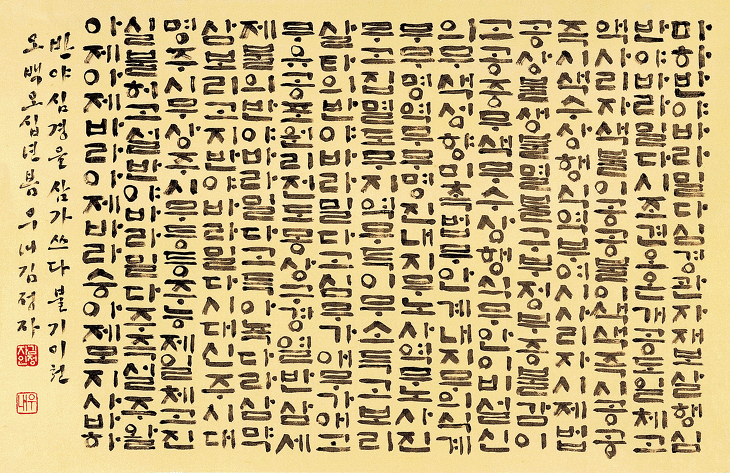 마하반야바라밀다심경관자재보살행심
반야바라밀다시조견오온개공도일체고
액사리자색불이공공불이색색즉시공공
즉시색수상행식역부여시사리자시제법
공상불생불멸불구부정부증불감시
고공중무색무수상행식무안이비설신
의무색성향미촉법무안계내지무의식계
무무명역무무명진내지무노사역무노사진
무고집멸도무지역무득이무소득고보리
살타의반야바라밀다고심무가애무가애고
무유공포원리전도몽상구경열반삼세
제불의반야바라밀다고득아뇩다라삼먁
삼보리고지반야바라밀다시대신주시대
명주시무상주시무등등주능제일체고진
실불허고설반야바라밀다주즉설주왈
아제아제바라아제바라승아제모지사바하
반야심경을 삼가 쓰다 불기 이천
오백오십년 봄 우내 김정자